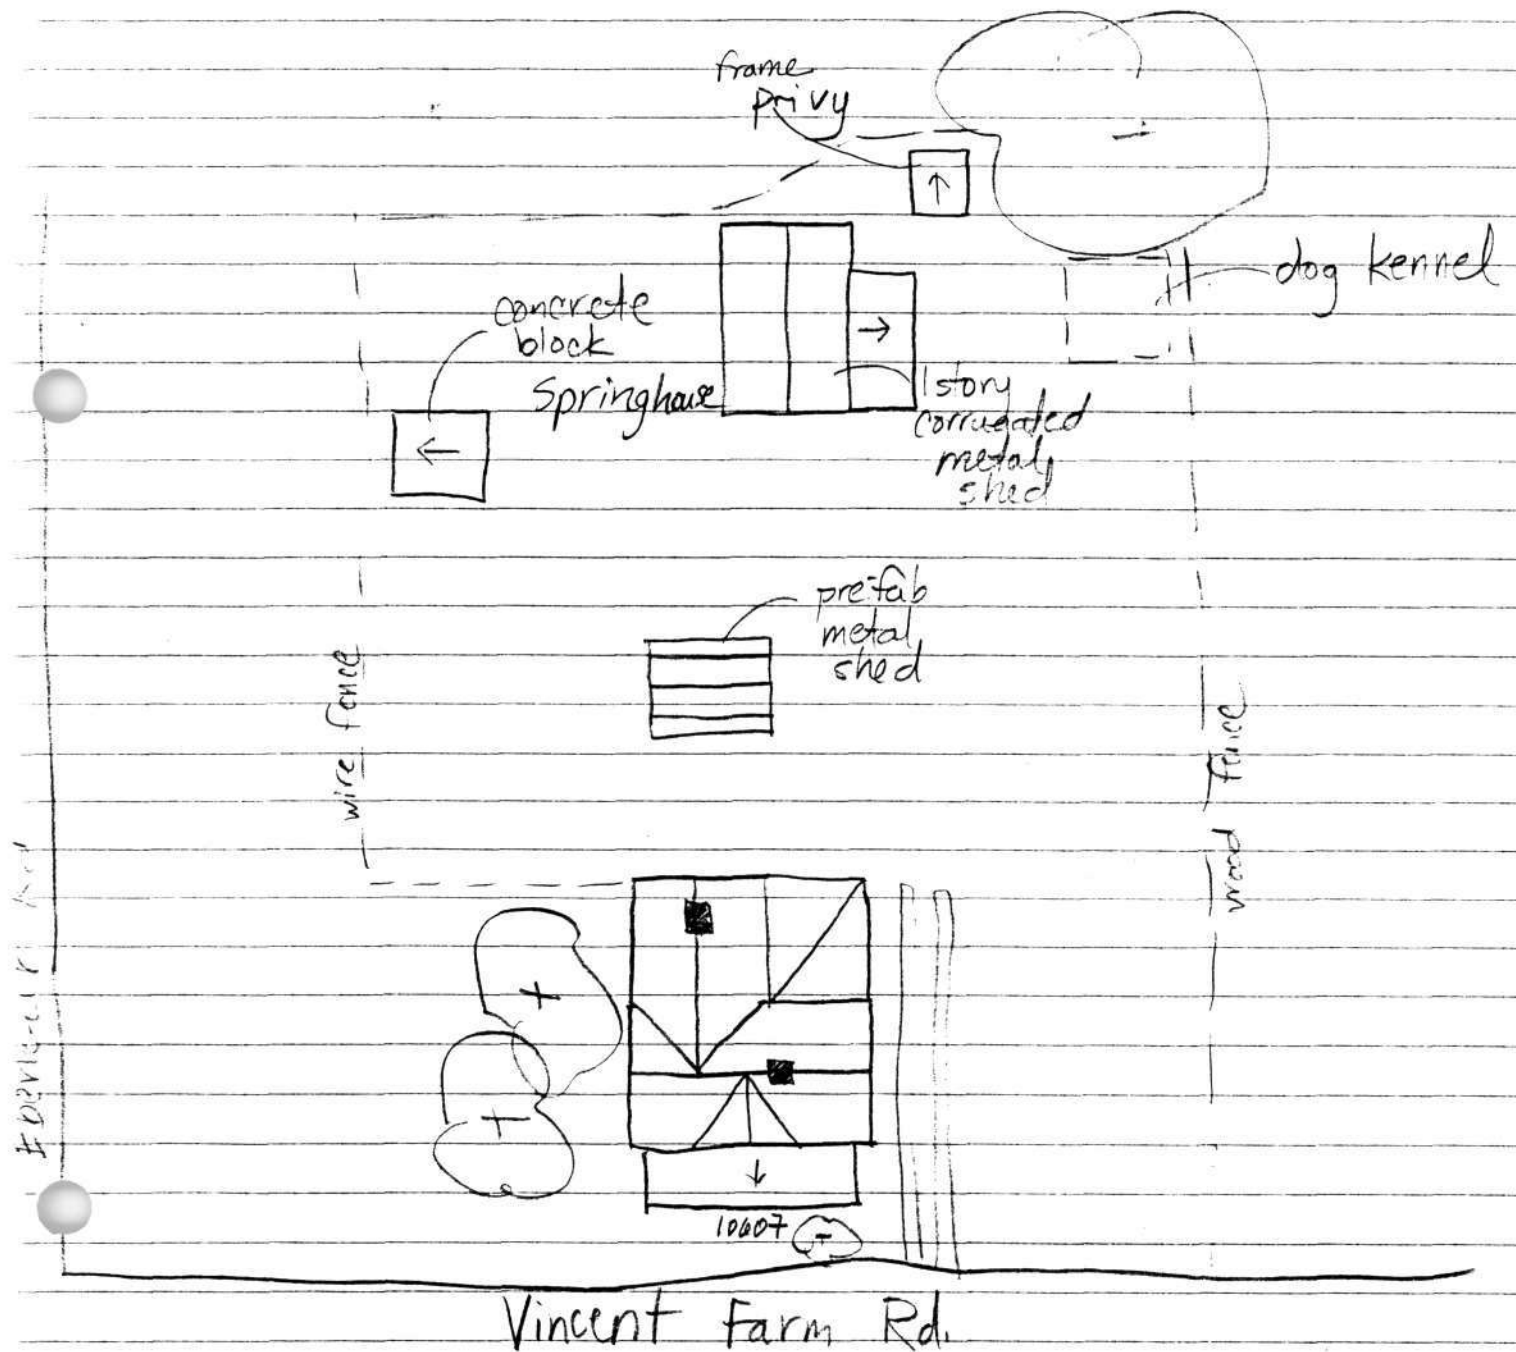 frame
privy
dog kennel
concrete
block
Springhouse
1 story
corrugated
metal
shed
prefab
metal
shed
wire fence
wood fence
10607
Vincent Farm Rd.